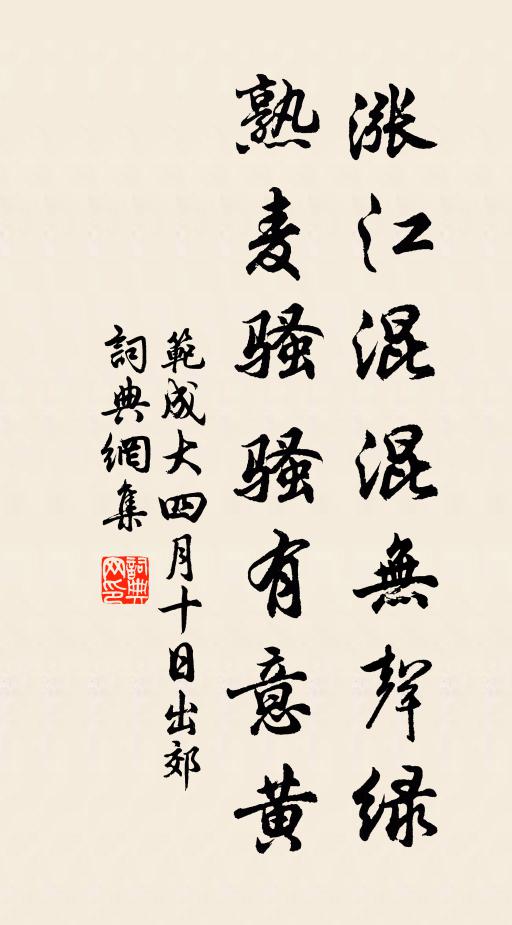 漲江混混無聲綠
熟麦騷騷有意黃
範成大四月十日出郊
詞典網集
詞典网印